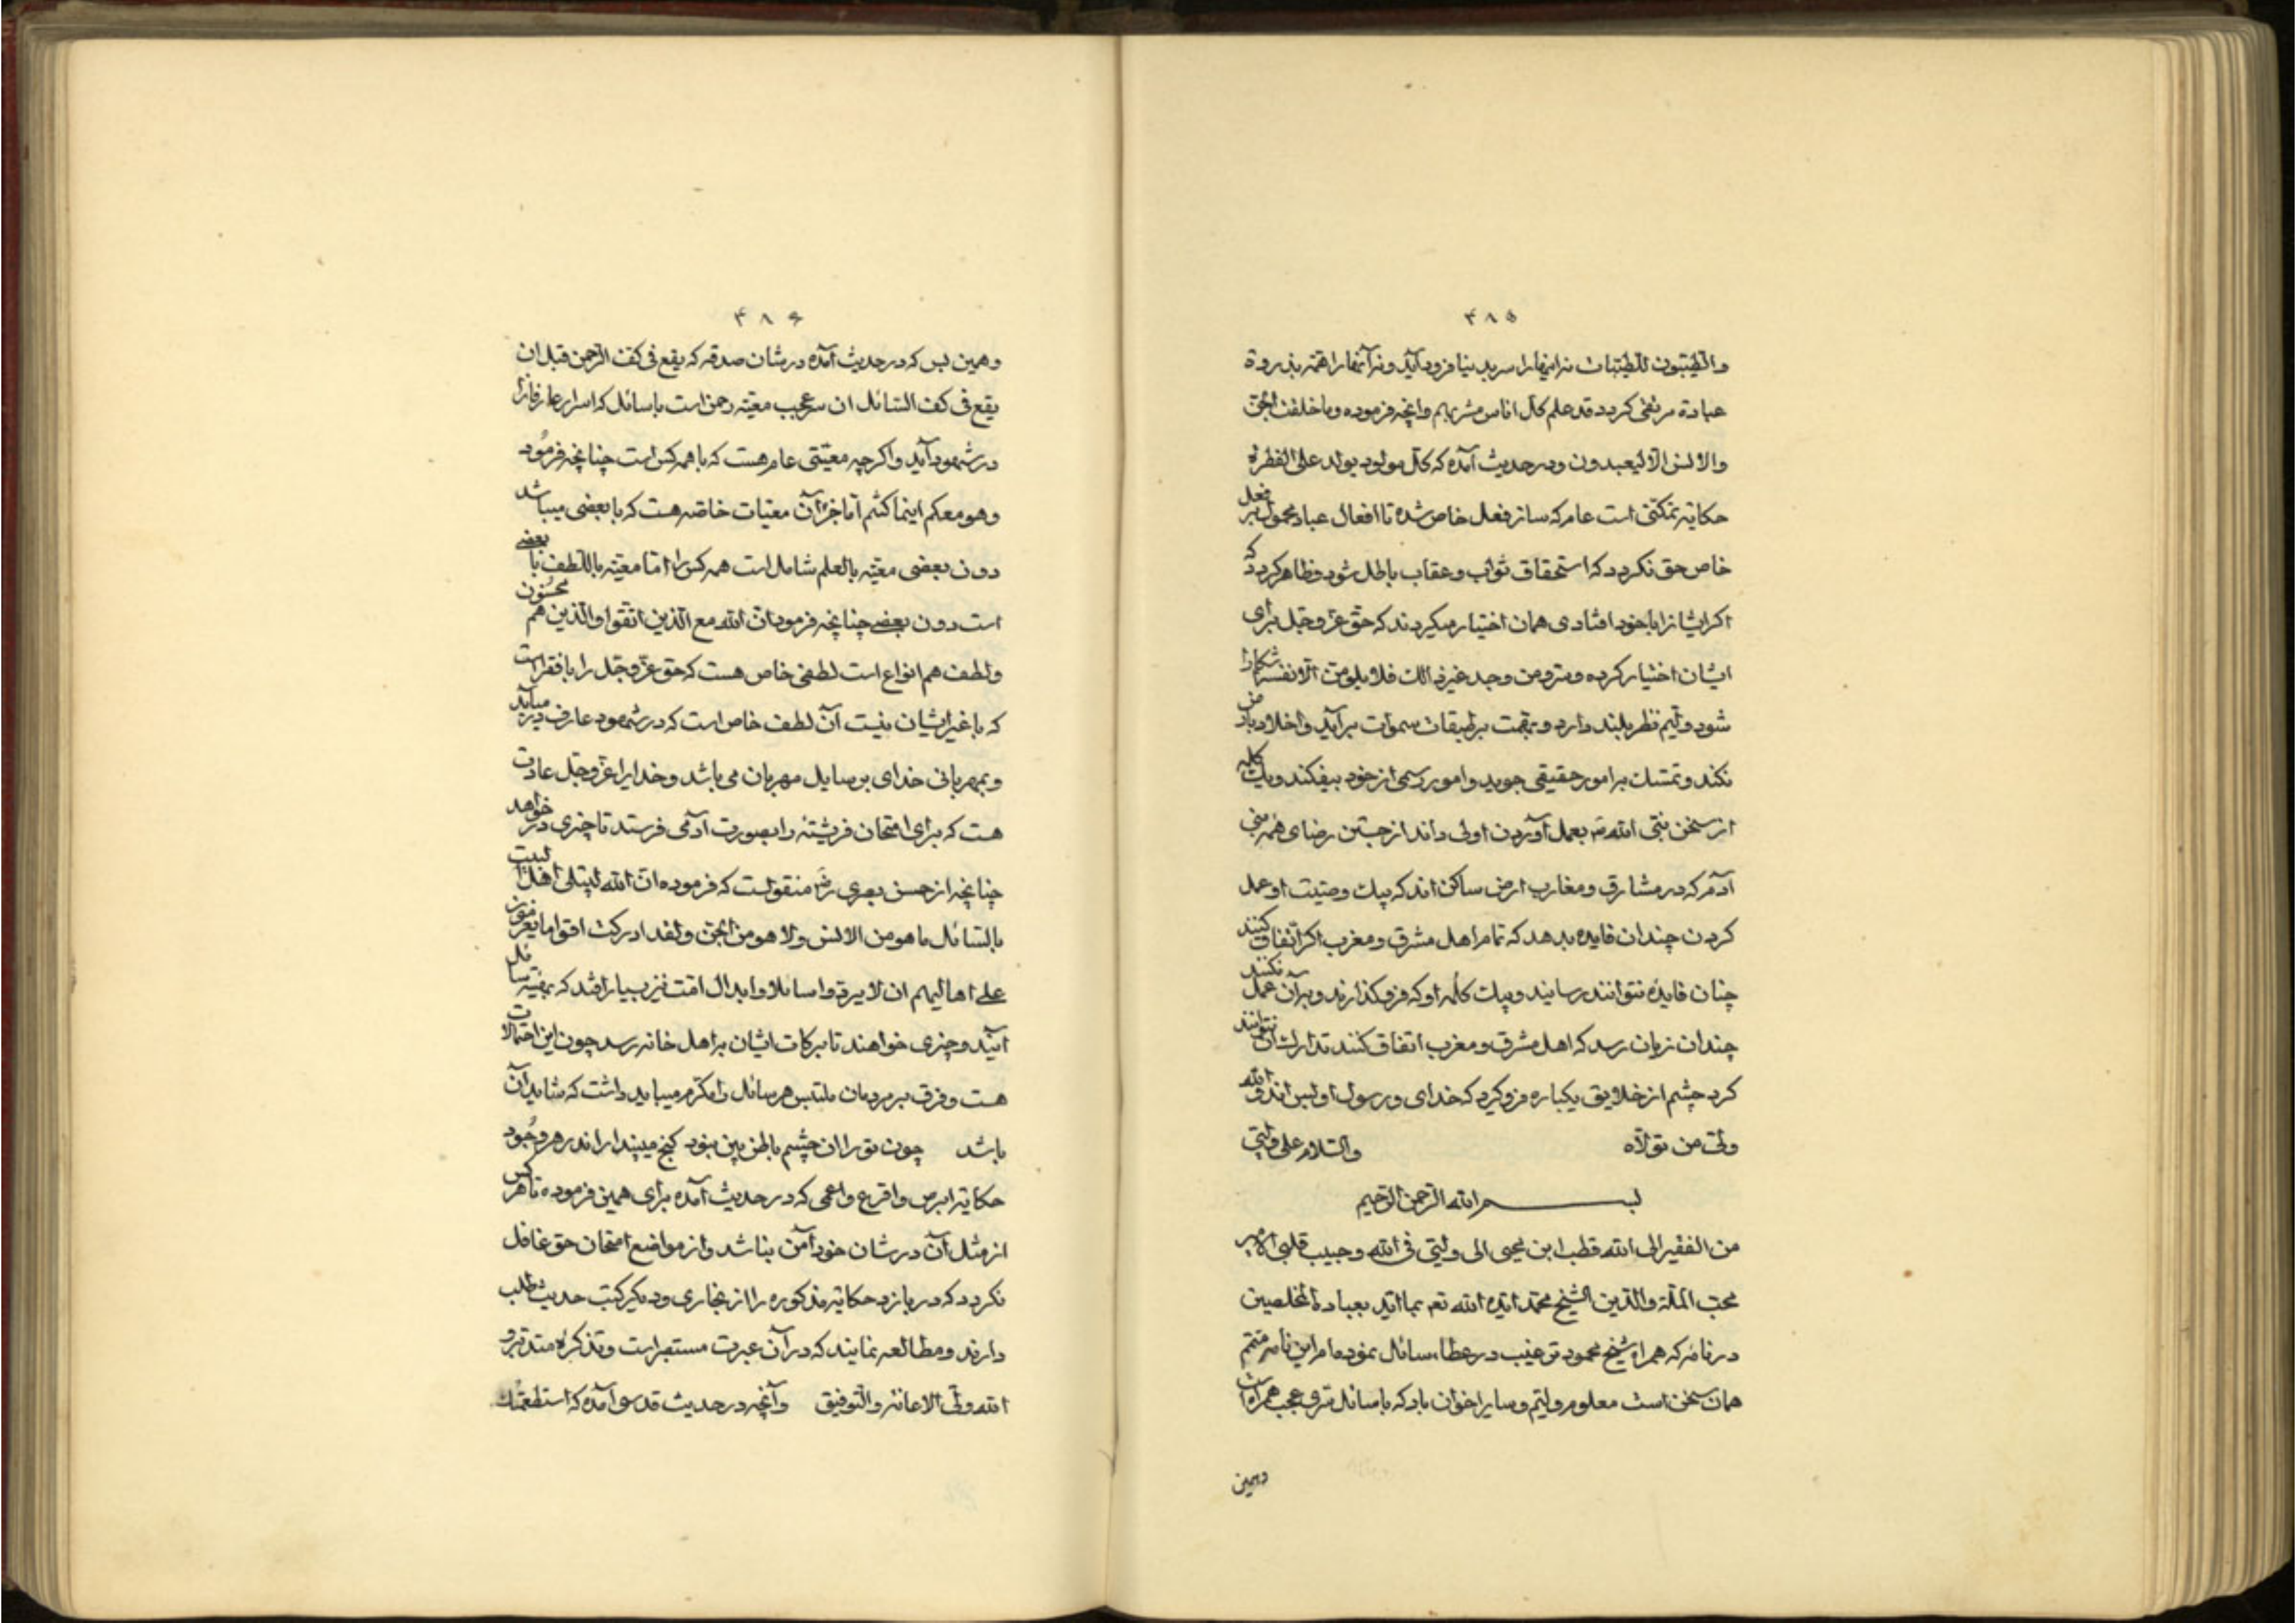 ۴۸۵
والطیبون للطیبات نه اینها را سر بدینا فرود آید و نه آنها را همّه بذروهٔ
عبادة مرتقی کردد قد علم کل اناس مشربهم وانچه فرموده وما خلقت الجن
والانس الا لیعبدون ودر حدیث آمده که کل مولود یولد علی الفطرة
حکایة تمکنی است عام که ساز فعل خاص شده تا افعال عباد محمول بر فعل
خاص حق نکردد که استحقاق ثواب وعقاب باطل شود وظاهر کردد که
اکر ایشانرا باخود افتادی همان اختیار میکردند که حق عز وجل برای
ایشان اختیار کرده ومن وجد غیر ذالک فلا یلومن الا نفسه
شود ولیم نظر بلند دارد وبهمت بر طبقات سموات برآید واخلاد بارض
نکند وتمسک بر امور حقیقی جوید وامور رسمی از خود بیفکند ویک کلمه
از سخن نبی الله بعمل آوردن اولی داند از جستن رضای همه بنی
آدم که در مشارق ومغارب ارض ساکن اند که بیک وصیت او عمل
کردن چندان فایده بدهد که تمام اهل مشرق ومغرب اکر اتفاق کنند
چنان فایده نتوانند رسانید وبیک کلمه او که فرو کذارند وبرآن عمل نکنند
چندان زیان رسد که اهل مشرق ومغرب اتفاق کنند تدارک آن نتوانند
کرد چشم از خلایق یکباره فرو کیرد که خدای ورسول او بس اند والله
ولی من تولاه والسلام علی ولیی
بسم الله الرحمن الرحیم
من الفقیر الی الله قطب ابن یحیی الی ولیی فی الله وحبیب قلبی الامیر
محب الملة والدین الشیخ محمد ایده الله تعم بما اید به عباده المخلصین
در نامه که همراه شیخ محمود ترغیب در عطاء سائل نموده‌ام این نامه متمم
همان سخن است معلوم ولیم وسایر اخوان باد که با سائل سری عجب همراه است
وهمین
۴۸۶
وهمین بس که در حدیث آمده در شان صدقه که یقع فی کف الرحمن قبل ان
یقع فی کف السائل ان سر عجیب معیّة رحمن است با سائل که اسرار عارفانرا
در شهود آید واکرچه معیتی عام هست که با همه کس است چنانچه فرمود
وهو معکم اینما کنتم اما جز آن معیات خاصه هست که با بعضی میباشد
دون بعضی معیّة بالعلم شامل است همه کس را اما معیّة باللطف با بعضی
است دون بعضی چنانچه فرمود ان الله مع الذین اتقوا والذین هم محسنون
ولطف هم انواع است لطفی خاص هست که حق عز وجل را با فقر است
که با غیر ایشان نیست آن لطف خاص است که در شهود عارف در میآید
وبمهربانی خدای بر سایل مهربان می باشد وخدایرا عز وجل عادت
هست که برای امتحان فرشته را بصورت آدمی فرستد تا چیزی در خواهد
چنانچه از حسن بصری منقولست که فرموده ان الله لیبتلی اهل البیت
بالسائل ما هو من الانس ولا هو من الجن ولقد ادرکت اقواما یعزمون
علی اهالیهم ان لا یردوا سائلا وابدال امت نیز بسیار افتد که بهیئة سائل
آیند وچیزی خواهند تا برکات ایشان بر اهل خانه رسد چون این احتمالات
هست وفرق بر مردمان ملتبس هر سائل را مکرم میباید داشت که شاید آن
باشد چون تو را ان چشم باطن بین نبود کنج میپندار اندر هر وجود
حکایة ابرص واقرع واعمی که در حدیث آمده برای همین فرموده تا هر کس
از مثل آن در شان خود آمن نباشد واز مواضع امتحان حق غافل
نکردد که دریابزد حکایة مذکوره را از بخاری ودیکر کتب حدیث طلب
دارند ومطالعه نمایند که در آن عبرت مستبصر است وتذکرهٔ متدبر و
الله ولی الاعانة والتوفیق وآنچه در حدیث قدسی آمده که استطعمتک